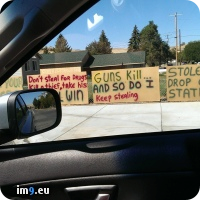 Don't steal for drugs
take his
WIN
GUNS Kill...
AND SO DO I
Keep stealing
STOLE
DROP
STAT
im9.eu